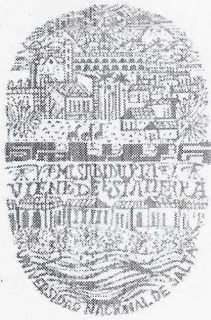 MI SABIDURIA
VIENE DESTA TIERRA
UNIVERSIDAD NACIONAL DE SALTA